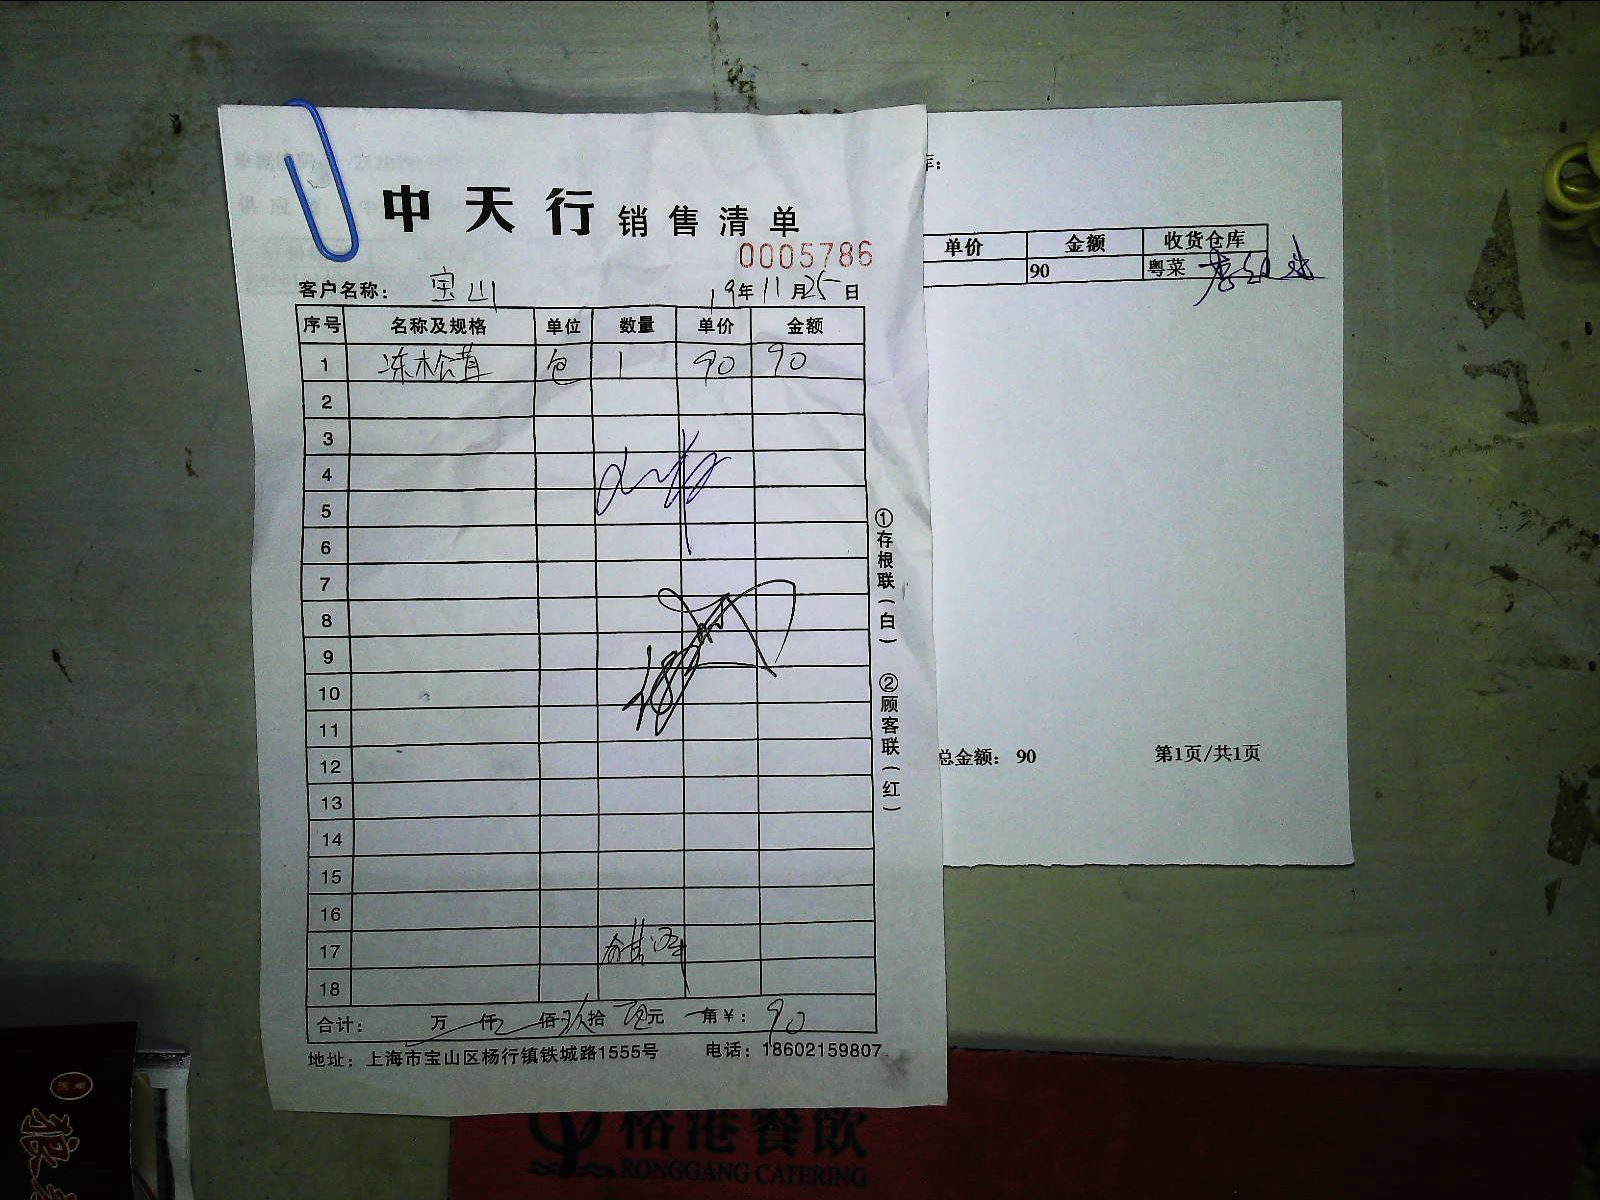 中天行 销售清单
0005786
客户名称: 宝山 19年11月25日
序号 名称及规格 单位 数量 单价 金额
1 冻松茸 包 1 90 90
2
3
4
5
6
7
8
9
10
11
12
13
14
15
16
17
18
合计: 万 仟 佰 玖拾 元 角 ¥: 90
地址: 上海市宝山区杨行镇铁城路1555号 电话: 18602159807
①存根联(白) ②顾客联(红)
单价 金额 收货仓库
90 粤菜
总金额: 90 第1页/共1页
裕港餐飲
RONGGANG CATERING